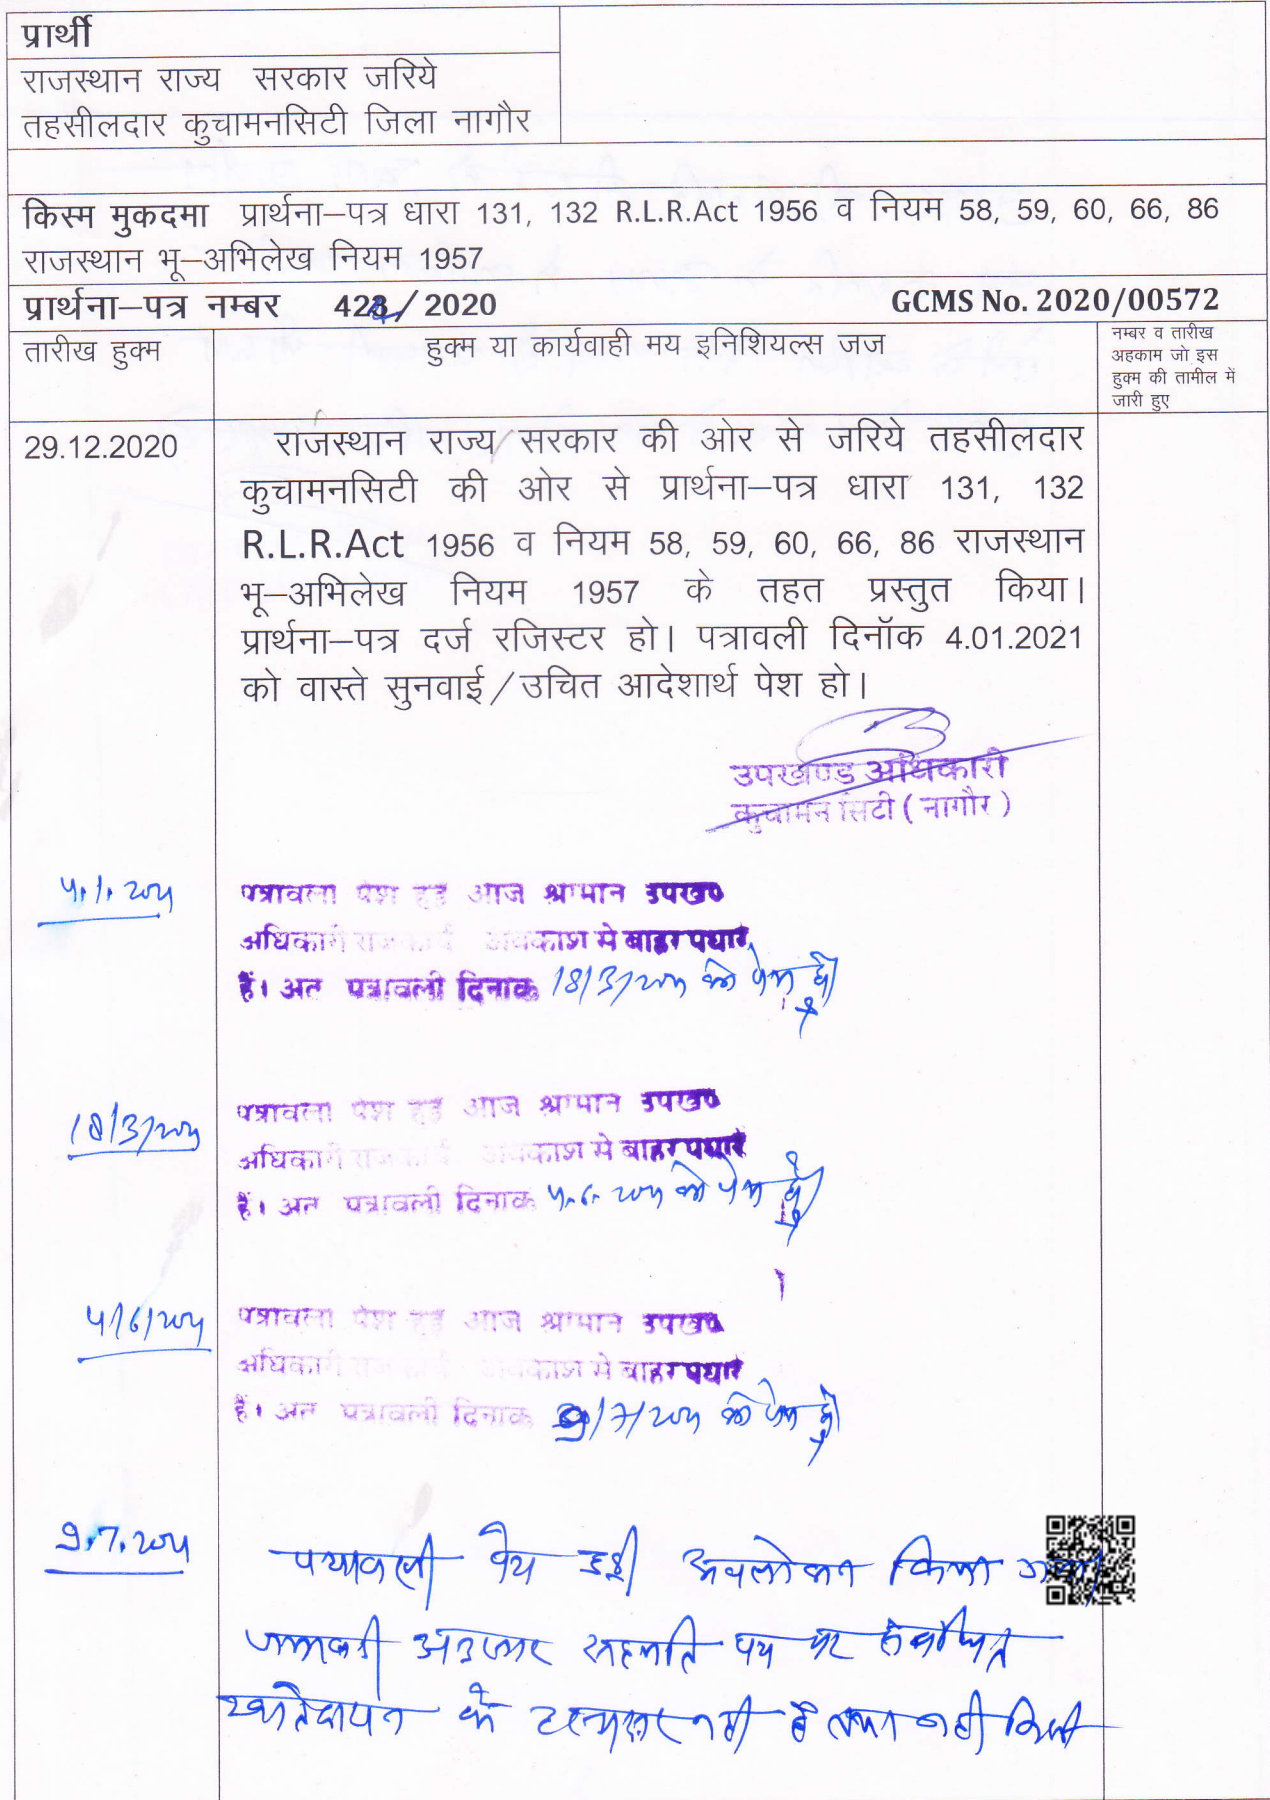 प्रार्थी
राजस्थान राज्य सरकार जरिये
तहसीलदार कुचामनसिटी जिला नागौर
किस्म मुकदमा प्रार्थना–पत्र धारा 131, 132 R.L.R.Act 1956 व नियम 58, 59, 60, 66, 86
राजस्थान भू–अभिलेख नियम 1957
प्रार्थना–पत्र नम्बर 424/2020 GCMS No. 2020/00572
तारीख हुक्म
हुक्म या कार्यवाही मय इनिशियल्स जज
नम्बर व तारीख
अहकाम जो इस
हुक्म की तामील में
जारी हुए
29.12.2020
राजस्थान राज्य सरकार की ओर से जरिये तहसीलदार
कुचामनसिटी की ओर से प्रार्थना–पत्र धारा 131, 132
R.L.R.Act 1956 व नियम 58, 59, 60, 66, 86 राजस्थान
भू–अभिलेख नियम 1957 के तहत प्रस्तुत किया।
प्रार्थना–पत्र दर्ज रजिस्टर हो। पत्रावली दिनॉक 4.01.2021
को वास्ते सुनवाई/उचित आदेशार्थ पेश हो।
उपखण्ड अधिकारी
कुचामन सिटी ( नागौर )
4.1.2021
पत्रावली पेश हुई आज श्रीमान उपखण्ड
अधिकारी राजकार्य अवकाश मे बाहर पधारे
हैं। अत पत्रावली दिनाक 18/3/2021 को पेश हो
18/3/2021
पत्रावली पेश हुई आज श्रीमान उपखण्ड
अधिकारी राजकार्य अवकाश मे बाहर पधारे
हैं। अत पत्रावली दिनाक 4.6.2021 को पेश हो
4/6/2021
पत्रावली पेश हुई आज श्रीमान उपखण्ड
अधिकारी राजकार्य अवकाश मे बाहर पधारे
हैं। अत पत्रावली दिनाक 9/7/2021 को पेश हो
9.7.2021
पत्रावली पेश हुई अवलोकन किया गया
अनुसार सहमति पत्र पर संबंधित
खातेदारान के हस्ताक्षर नही है तथा नही किसी